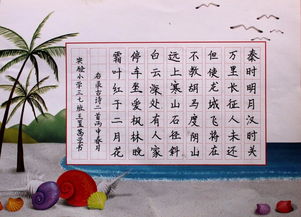 秦时明月汉时关
万里长征人未还
但使龙城飞将在
不教胡马度阴山
远上寒山石径斜
白云深处有人家
停车坐爱枫林晚
霜叶红于二月花
右录古诗二首丙申春月
实验小学三七班王